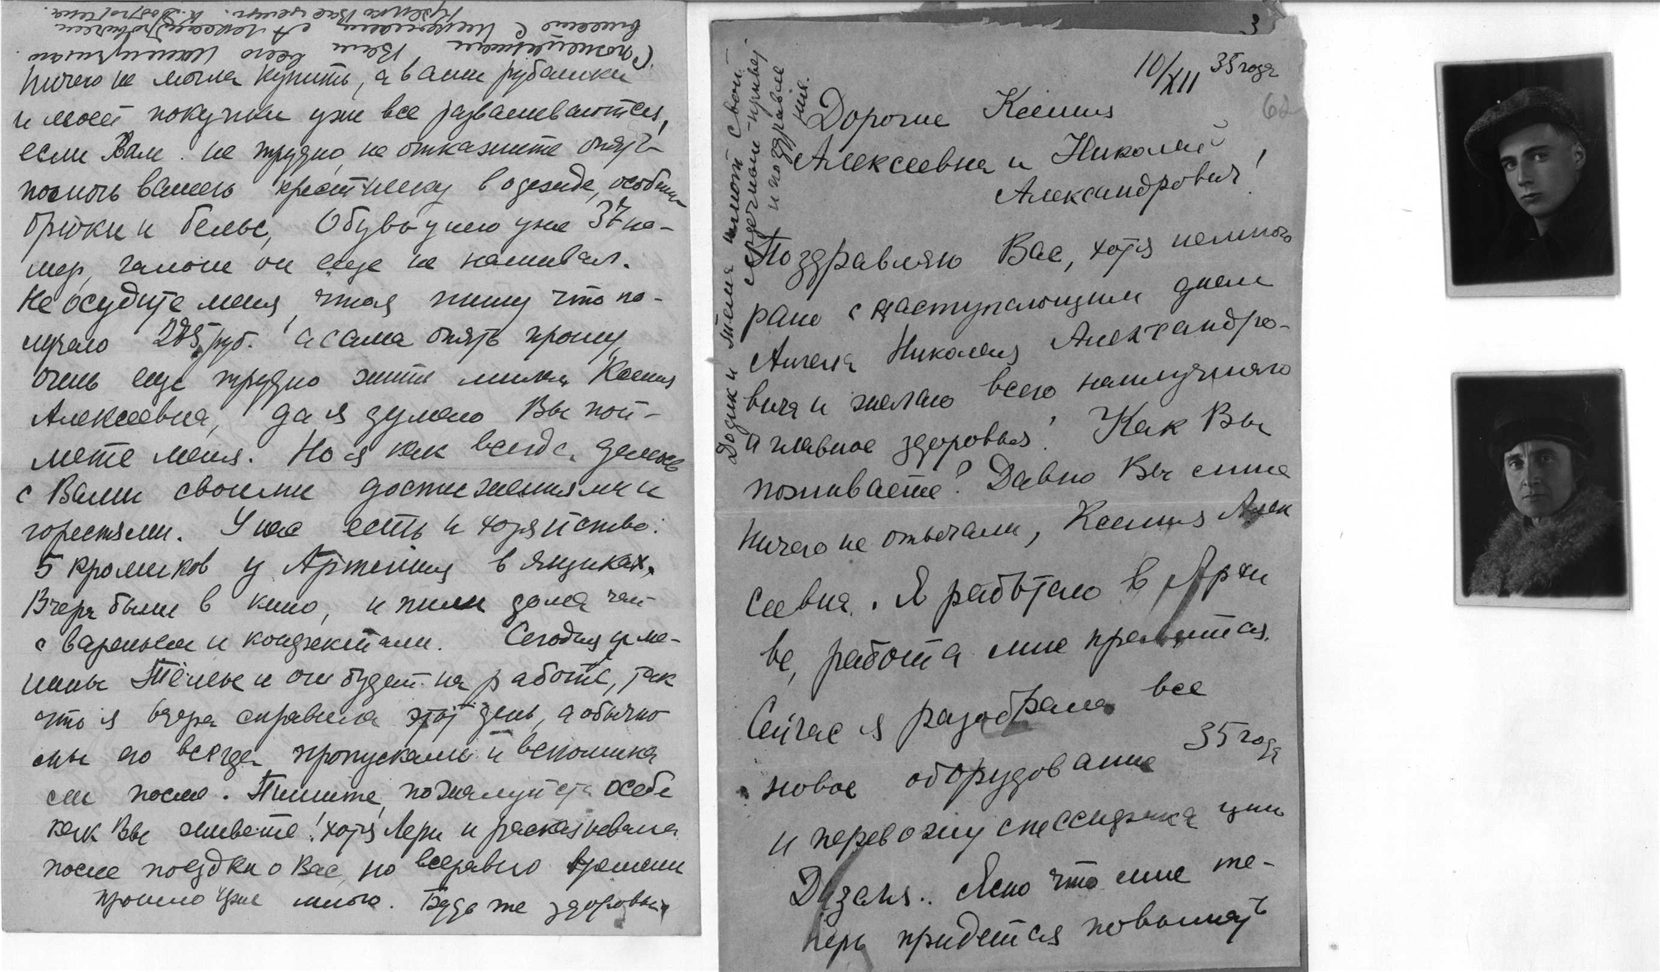 ничего не могла купить, а ваши рубашки
и моей покупки уже все разваливаются,
если Вам не трудно, не откажите опять
помочь вашему крестнику в одежде, особенно
брюки и белье, Обувь у него уже 37 но-
мер, галоши он еще не нашивал.
Не осудите меня, что я пишу что по-
лучаю 285 руб.! а сама опять прошу,
очень еще трудно жить милая Ксения
Алексеевна, да я думаю Вы пой-
мете меня. Но я как всегда делюсь
с Вами своими достижениями и
горестями. У нас есть и хозяйство:
5 кроликов у Артемия в ящиках.
Вчера были в кино, и пили дома чай
с вареньем и конфектами. Сегодня име-
нины Тёмы и он будет на работе, так
что я вчера справила этот день, а обычно
мы его всегда пропускали и вспомина
ли после. Пишите, пожалуйста о себе
как Вы живете! хотя Лери и рассказывала
после поездки о Вас, но всеравно времени
прошло уже много. Будьте здоровы,
С пожеланием Вам всего наилучшего
вместе с Николаем Александровичем
3
10/XII 35 года
62
Дорогие Ксения
Алексеевна и Николай
Александрович!
Поздравляю Вас, хотя немного
рано с наступающим днем
Ангела Николая Александро-
вича и желаю всего наилучшего
а главное здоровья! Как Вы
поживаете? Давно Вы мне
ничего не отвечали, Ксения Алек
сеевна. Я работаю в Архи
ве, работа мне нравится.
Сейчас я разобрала все
новое оборудование 35 года
и перевожу спессификации
Дизеля.. Ясно что мне те-
перь придется повышать
Додик и Тёма шлют свой
сердечный привет
и поздравле
ния.